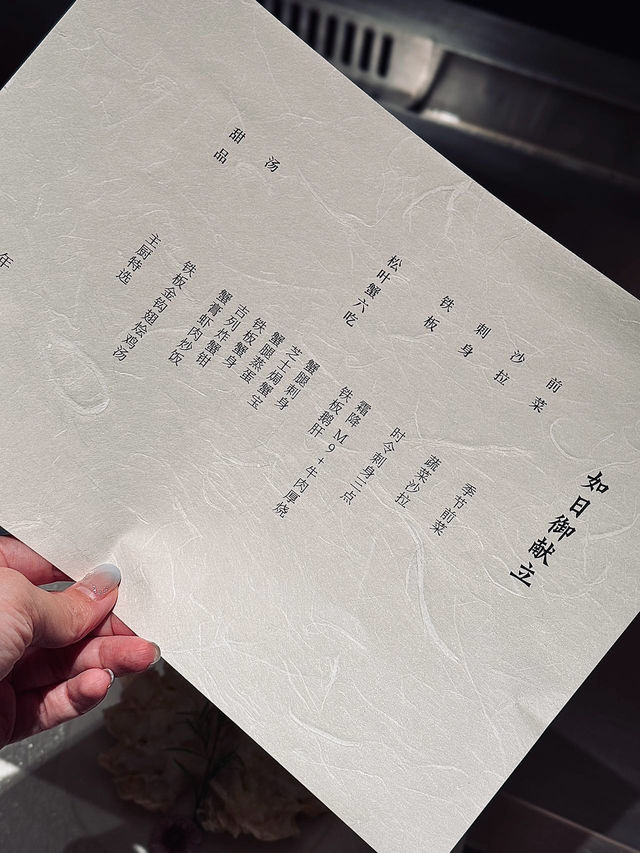 如日御献立
前菜
季节前菜
沙拉
蔬菜沙拉
刺身
时令刺身三点
铁板
霜降M9+牛肉厚烧
铁板鹅肝
松叶蟹六吃
蟹腿刺身
芝士焗蟹宝
蟹腿蒸蛋
铁板蟹身
吉列炸蟹钳
蟹膏虾肉炒饭
汤
铁板金钩翅烩鸡汤
甜品
主厨特选
年